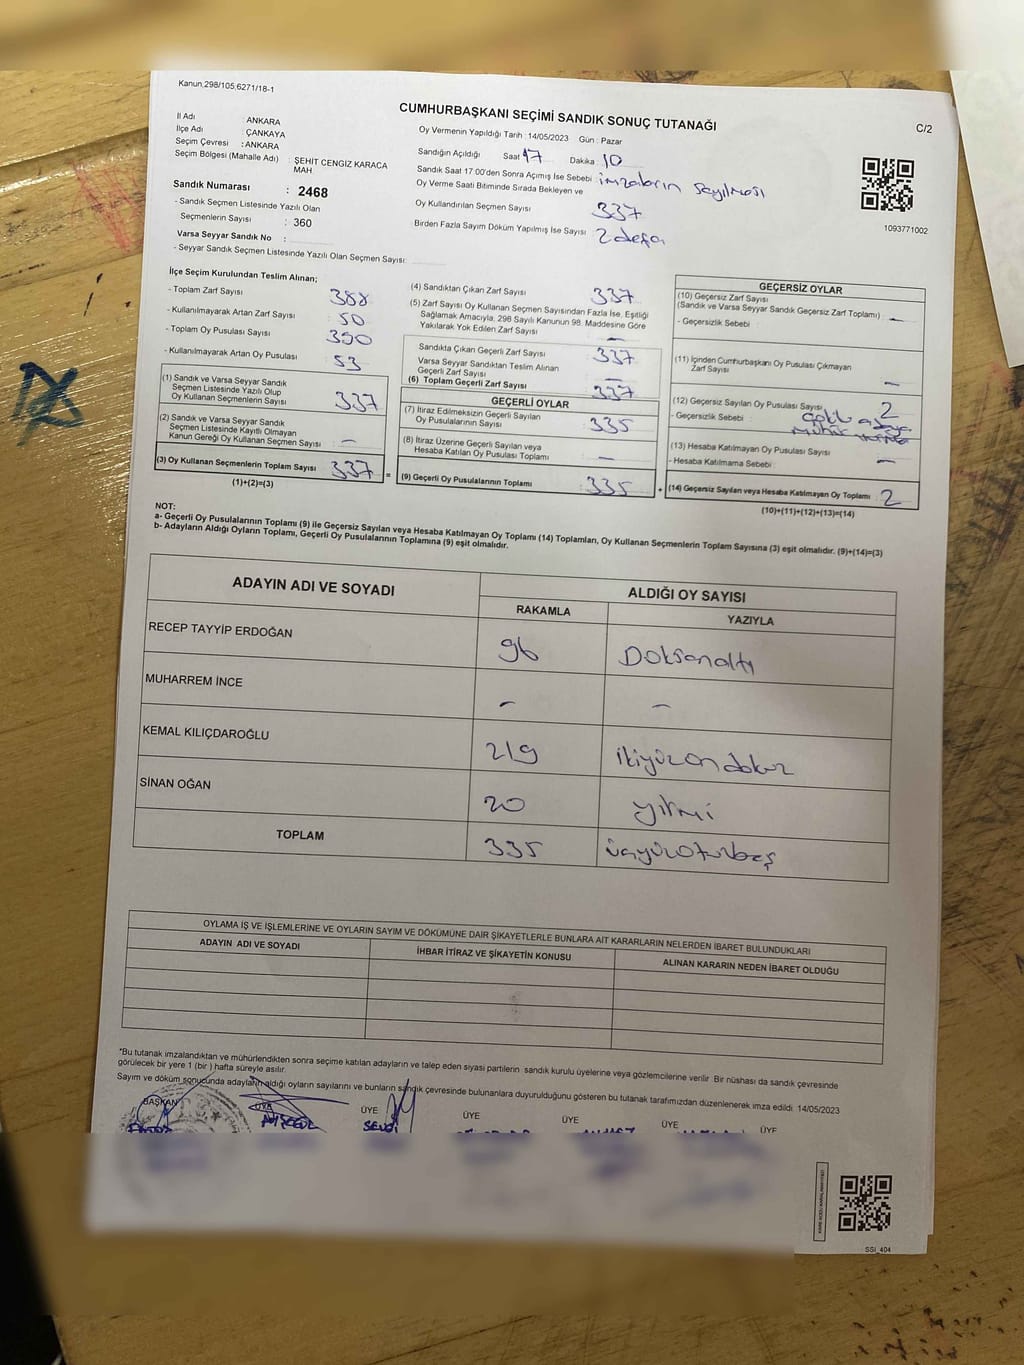 Kanun,298/105,6271/18-1
CUMHURBAŞKANI SEÇİMİ SANDIK SONUÇ TUTANAĞI
C/2
İl Adı : ANKARA
İlçe Adı : ÇANKAYA
Seçim Çevresi : ANKARA
Seçim Bölgesi (Mahalle Adı) : ŞEHİT CENGİZ KARACA MAH
Sandık Numarası : 2468
- Sandık Seçmen Listesinde Yazılı Olan
Seçmenlerin Sayısı : 360
Varsa Seyyar Sandık No :
- Seyyar Sandık Seçmen Listesinde Yazılı Olan Seçmen Sayısı:
Oy Vermenin Yapıldığı Tarih : 14/05/2023 Gün : Pazar
Sandığın Açıldığı Saat 17 Dakika : 10
Sandık Saat 17.00'den Sonra Açımış İse Sebebi : imzaların sayılması
Oy Verme Saati Bitiminde Sırada Bekleyen ve
Oy Kullandırılan Seçmen Sayısı 337
Birden Fazla Sayım Döküm Yapılmış İse Sayısı : 2 defa
1093771002
İlçe Seçim Kurulundan Teslim Alınan;
- Toplam Zarf Sayısı : 388
- Kullanılmayarak Artan Zarf Sayısı : 50
- Toplam Oy Pusulası Sayısı : 390
- Kullanılmayarak Artan Oy Pusulası : 53
(1) Sandık ve Varsa Seyyar Sandık
Seçmen Listesinde Yazılı Olup
Oy Kullanan Seçmenlerin Sayısı : 337
(2) Sandık ve Varsa Seyyar Sandık
Seçmen Listesinde Kayıtlı Olmayan
Kanun Gereği Oy Kullanan Seçmen Sayısı : –
(3) Oy Kullanan Seçmenlerin Toplam Sayısı : 337 =
(1)+(2)=(3)
(4) Sandıktan Çıkan Zarf Sayısı : 337
(5) Zarf Sayısı Oy Kullanan Seçmen Sayısından Fazla İse, Eşitliği
Sağlamak Amacıyla, 298 Sayılı Kanunun 98. Maddesine Göre
Yakılarak Yok Edilen Zarf Sayısı : –
Sandıkta Çıkan Geçerli Zarf Sayısı : 337
Varsa Seyyar Sandıktan Teslim Alınan
Geçerli Zarf Sayısı : –
(6) Toplam Geçerli Zarf Sayısı : 337
GEÇERLİ OYLAR
(7) İtiraz Edilmeksizin Geçerli Sayılan
Oy Pusulalarının Sayısı : 335
(8) İtiraz Üzerine Geçerli Sayılan veya
Hesaba Katılan Oy Pusulası Toplamı : –
(9) Geçerli Oy Pusulalarının Toplamı : 335 +
GEÇERSİZ OYLAR
(10) Geçersiz Zarf Sayısı
(Sandık ve Varsa Seyyar Sandık Geçersiz Zarf Toplamı) : –
- Geçersizlik Sebebi :
(11) İçinden Cumhurbaşkanı Oy Pusulası Çıkmayan
Zarf Sayısı : –
(12) Geçersiz Sayılan Oy Pusulası Sayısı : 2
- Geçersizlik Sebebi :
(13) Hesaba Katılmayan Oy Pusulası Sayısı : –
- Hesaba Katılmama Sebebi :
(14) Geçersiz Sayılan veya Hesaba Katılmayan Oy Toplamı : 2
(10)+(11)+(12)+(13)=(14)
NOT:
a- Geçerli Oy Pusulalarının Toplamı (9) ile Geçersiz Sayılan veya Hesaba Katılmayan Oy Toplamı (14) Toplamları, Oy Kullanan Seçmenlerin Toplam Sayısına (3) eşit olmalıdır. (9)+(14)=(3)
b- Adayların Aldığı Oyların Toplamı, Geçerli Oy Pusulalarının Toplamına (9) eşit olmalıdır.
ADAYIN ADI VE SOYADI ALDIĞI OY SAYISI
RAKAMLA YAZIYLA
RECEP TAYYİP ERDOĞAN 96 Doksanaltı
MUHARREM İNCE – –
KEMAL KILIÇDAROĞLU 219 ikiyüzondokuz
SİNAN OĞAN 20 yirmi
TOPLAM 335 üçyüzotuzbeş
OYLAMA İŞ VE İŞLEMLERİNE VE OYLARIN SAYIM VE DÖKÜMÜNE DAİR ŞİKAYETLERLE BUNLARA AİT KARARLARIN NELERDEN İBARET BULUNDUKLARI
ADAYIN ADI VE SOYADI İHBAR İTİRAZ VE ŞİKAYETİN KONUSU ALINAN KARARIN NEDEN İBARET OLDUĞU
*Bu tutanak imzalandıktan ve mühürlendikten sonra seçime katılan adayların ve talep eden siyasi partilerin sandık kurulu üyelerine veya gözlemcilerine verilir. Bir nüshası da sandık çevresinde
görülecek bir yere 1 (bir) hafta süreyle asılır.
Sayım ve döküm sonucunda adayların aldığı oyların sayılarını ve bunların sandık çevresinde bulunanlara duyurulduğunu gösteren bu tutanak tarafımızdan düzenlenerek imza edildi. 14/05/2023
BAŞKAN ÜYE ÜYE ÜYE ÜYE ÜYE ÜYE
SSI_404